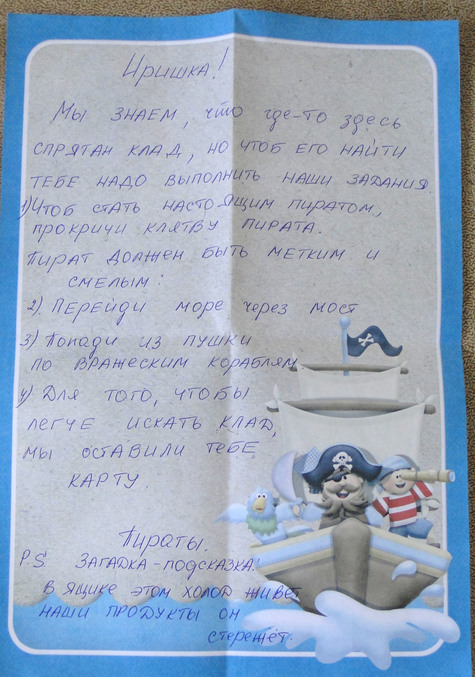 Иришка!
Мы знаем, что где-то здесь
спрятан клад, но чтоб его найти
тебе надо выполнить наши задания.
1) Чтоб стать настоящим пиратом,
прокричи клятву пирата.
Пират должен быть метким и
смелым:
2). Перейди море через мост
3) Попади из пушки
по вражеским кораблям
4) Для того, чтобы
легче искать клад,
мы оставили тебе
карту.
Пираты.
P.S. Загадка-подсказка:
в ящике этом холод живет
наши продукты он
стережёт.